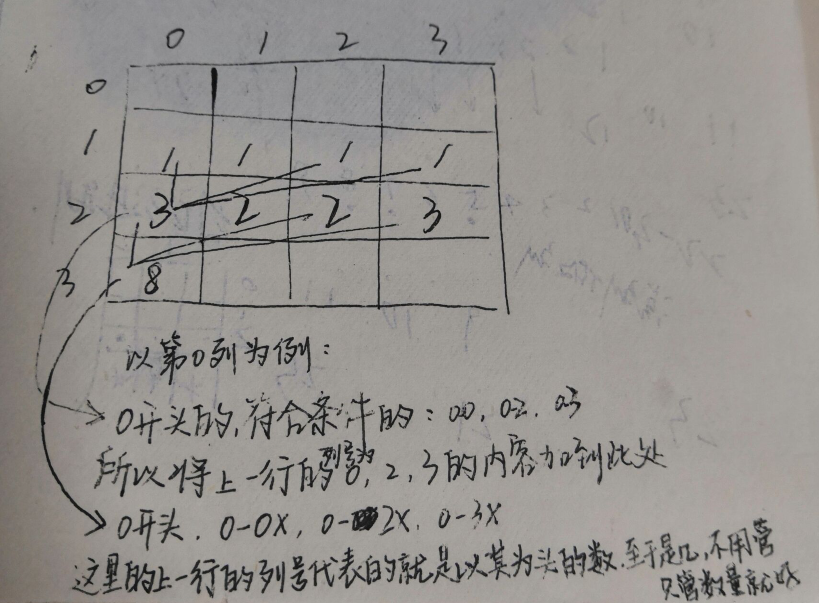 0 1 2 3
0
1 1 1 1 1
2 3 2 2 3
3 8
以第0列为例：
0开头的，符合条件的：00，02，03
列号为
所以将上一行的0，2，3的内容加到此处
0开头，0-0X，0-2X，0-3X
这里的上一行的列号代表的就是以其为头的数，至于是几，不用管
只管数量就好